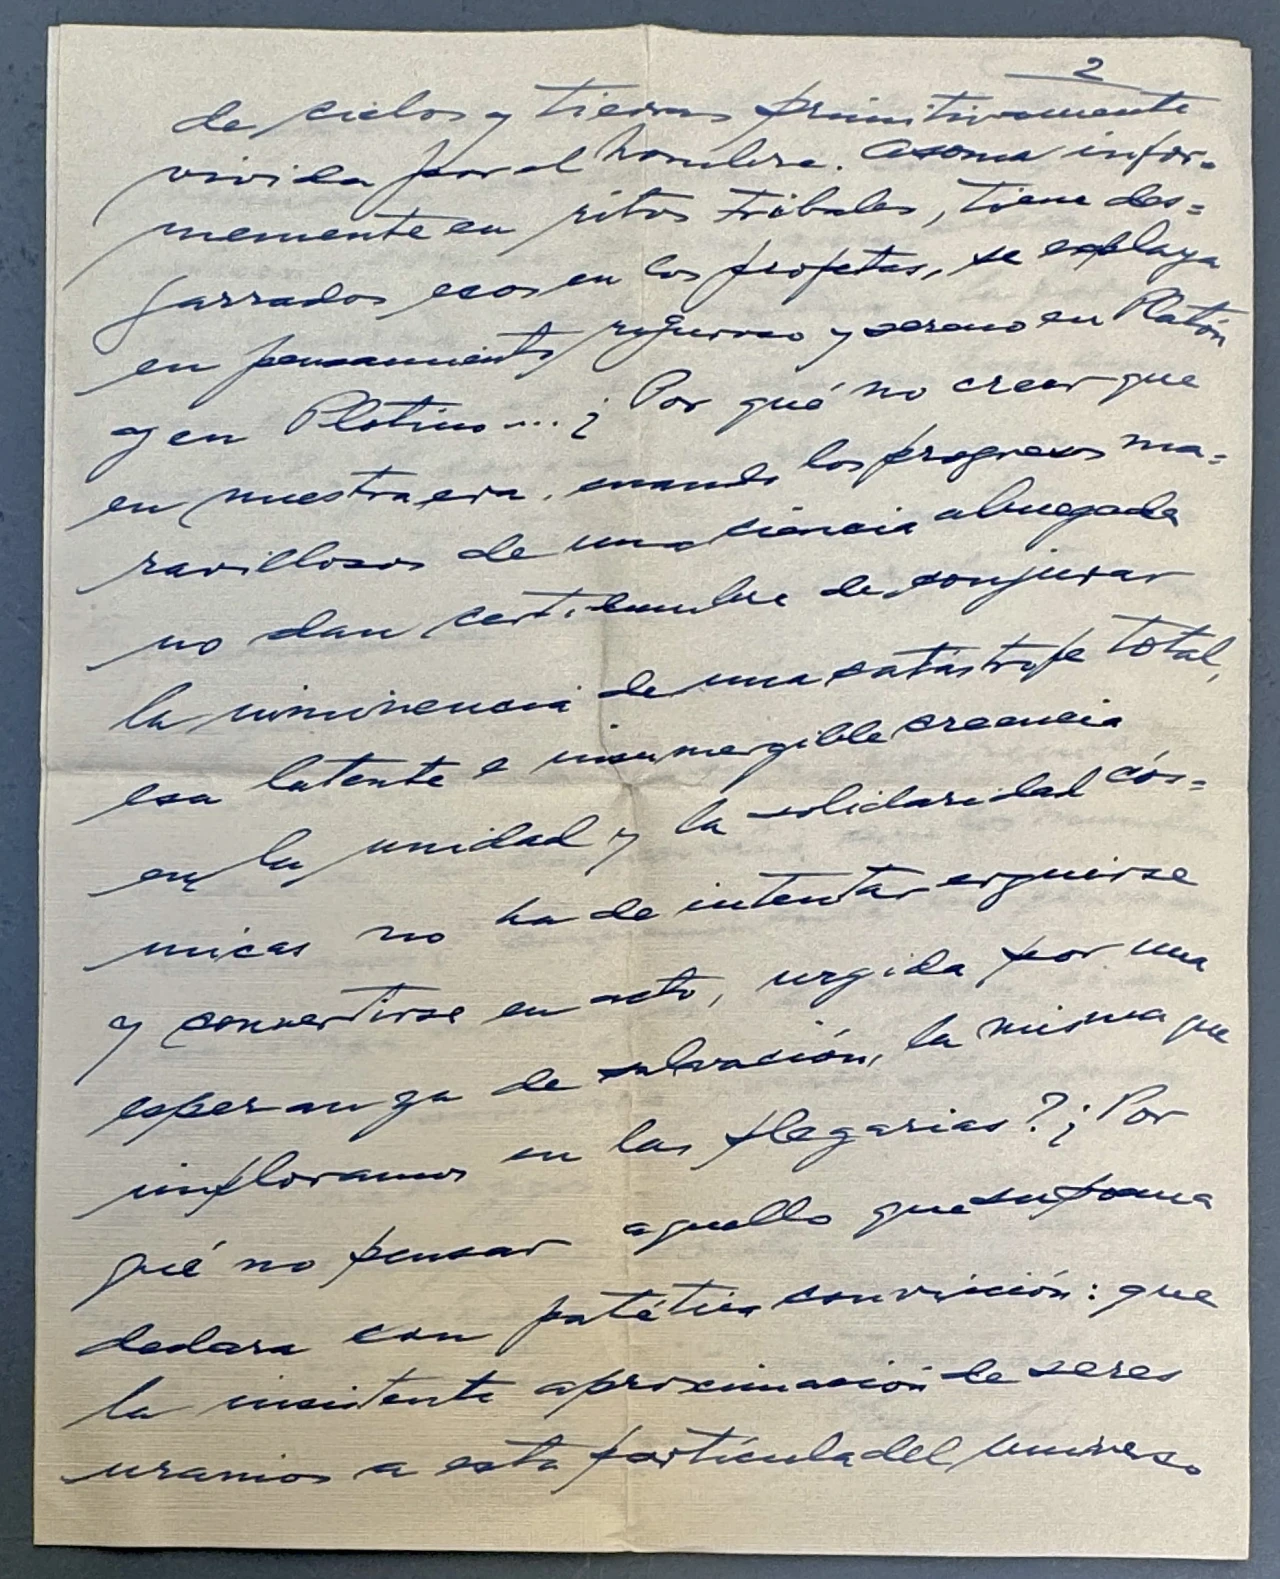 2
de cielos y tierras primitivamente
vivida por el hombre. Asoma infor=
memente en ritos tribales, tiene des=
garrados ecos en los profetas, se explaya
en pensamiento riguroso y sereno en Platón
y en Plotino... ¿Por qué no creer que
en nuestra era, cuando los progresos ma=
ravillosos de una ciencia abnegada
no dan certidumbre de conjurar
la inminencia de una catástrofe total,
esa latente e insumergible creencia
en la unidad y la solidaridad cós=
micas no ha de intentar erguirse
y convertirse en acto, urgida por una
esperanza de salvación, la misma que
imploramos en las plegarias? ¿Por
qué no pensar aquello que su poema
declara con patética convicción: que
la insistente aproximación de seres
uranios a esta partícula del universo